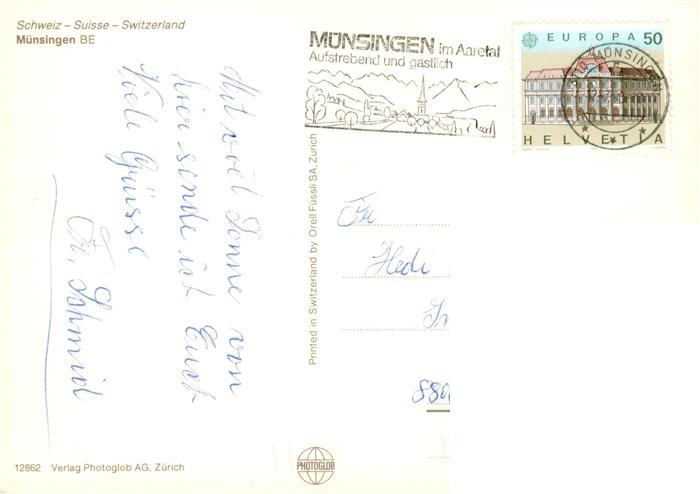 Schweiz – Suisse – Switzerland
Münsingen BE
MÜNSINGEN im Aaretal
Aufstrebend und gastlich
EUROPA 50
HELVETIA
MÜNSINGEN
Mit viel Sonne von
hier sende ich Euch
Viele Grüsse
Fr. Schmid
Printed in Switzerland by Orell Füssli SA, Zürich
Fr
Hedi
PHOTOGLOB
12862 Verlag Photoglob AG, Zürich